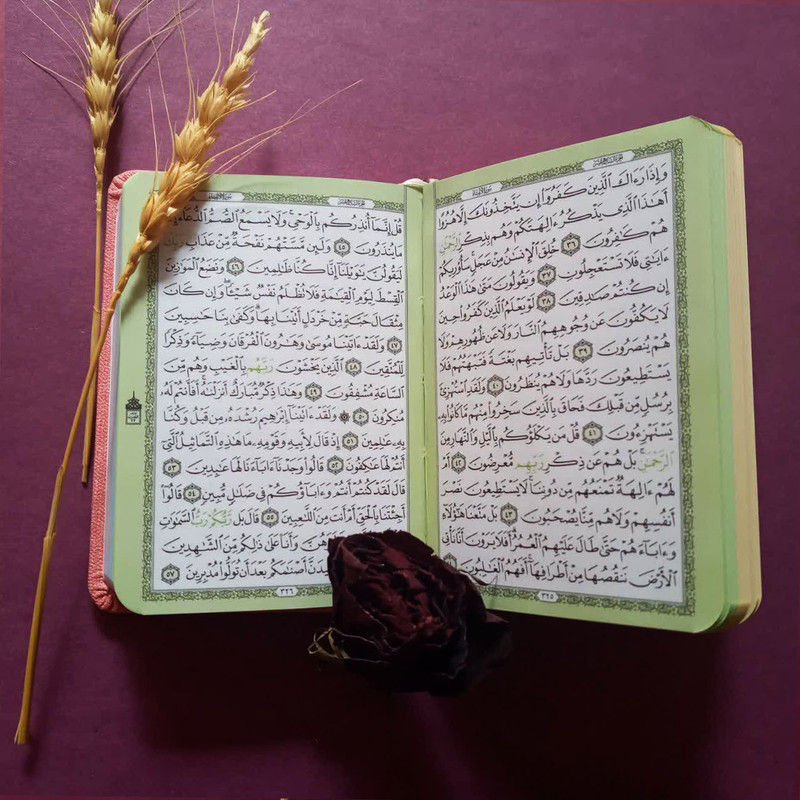 وَإِذَا رَءَاكَ ٱلَّذِينَ كَفَرُوٓاْ إِن يَتَّخِذُونَكَ إِلَّا هُزُوًا
أَهَٰذَا ٱلَّذِي يَذْكُرُ ءَالِهَتَكُمْ وَهُم بِذِكْرِ ٱلرَّحْمَٰنِ
هُمْ كَٰفِرُونَ ٣٦ خُلِقَ ٱلْإِنسَٰنُ مِنْ عَجَلٍ سَأُوْرِيكُمْ
ءَايَٰتِي فَلَا تَسْتَعْجِلُونِ ٣٧ وَيَقُولُونَ مَتَىٰ هَٰذَا ٱلْوَعْدُ
إِن كُنتُمْ صَٰدِقِينَ ٣٨ لَوْ يَعْلَمُ ٱلَّذِينَ كَفَرُواْ حِينَ
لَا يَكُفُّونَ عَن وُجُوهِهِمُ ٱلنَّارَ وَلَا عَن ظُهُورِهِمْ وَلَا
هُمْ يُنصَرُونَ ٣٩ بَلْ تَأْتِيهِم بَغْتَةً فَتَبْهَتُهُمْ فَلَا
يَسْتَطِيعُونَ رَدَّهَا وَلَا هُمْ يُنظَرُونَ ٤٠ وَلَقَدِ ٱسْتُهْزِئَ
بِرُسُلٍ مِّن قَبْلِكَ فَحَاقَ بِٱلَّذِينَ سَخِرُواْ مِنْهُم مَّا كَانُواْ بِهِۦ
يَسْتَهْزِءُونَ ٤١ قُلْ مَن يَكْلَؤُكُم بِٱلَّيْلِ وَٱلنَّهَارِ مِنَ
ٱلرَّحْمَٰنِ بَلْ هُمْ عَن ذِكْرِ رَبِّهِم مُّعْرِضُونَ ٤٢ أَمْ
لَهُمْ ءَالِهَةٌ تَمْنَعُهُم مِّن دُونِنَا لَا يَسْتَطِيعُونَ نَصْرَ
أَنفُسِهِمْ وَلَا هُم مِّنَّا يُصْحَبُونَ ٤٣ بَلْ مَتَّعْنَا هَٰٓؤُلَآءِ
وَءَابَآءَهُمْ حَتَّىٰ طَالَ عَلَيْهِمُ ٱلْعُمُرُ أَفَلَا يَرَوْنَ أَنَّا نَأْتِي
ٱلْأَرْضَ نَنقُصُهَا مِنْ أَطْرَافِهَآ أَفَهُمُ ٱلْغَٰلِبُونَ
٣٢٥
قُلْ إِنَّمَآ أُنذِرُكُم بِٱلْوَحْيِ وَلَا يَسْمَعُ ٱلصُّمُّ ٱلدُّعَآءَ
مَا يُنذَرُونَ ٤٥ وَلَئِن مَّسَّتْهُمْ نَفْحَةٌ مِّنْ عَذَابِ رَبِّكَ
لَيَقُولُنَّ يَٰوَيْلَنَآ إِنَّا كُنَّا ظَٰلِمِينَ ٤٦ وَنَضَعُ ٱلْمَوَٰزِينَ
ٱلْقِسْطَ لِيَوْمِ ٱلْقِيَٰمَةِ فَلَا تُظْلَمُ نَفْسٌ شَيْـًٔا وَإِن كَانَ
مِثْقَالَ حَبَّةٍ مِّنْ خَرْدَلٍ أَتَيْنَا بِهَا وَكَفَىٰ بِنَا حَٰسِبِينَ
٤٧ وَلَقَدْ ءَاتَيْنَا مُوسَىٰ وَهَٰرُونَ ٱلْفُرْقَانَ وَضِيَآءً وَذِكْرًا
لِّلْمُتَّقِينَ ٤٨ ٱلَّذِينَ يَخْشَوْنَ رَبَّهُم بِٱلْغَيْبِ وَهُم مِّنَ
ٱلسَّاعَةِ مُشْفِقُونَ ٤٩ وَهَٰذَا ذِكْرٌ مُّبَارَكٌ أَنزَلْنَٰهُ أَفَأَنتُمْ لَهُۥ
مُنكِرُونَ ٥٠ ۞ وَلَقَدْ ءَاتَيْنَآ إِبْرَٰهِيمَ رُشْدَهُۥ مِن قَبْلُ وَكُنَّا
بِهِۦ عَٰلِمِينَ ٥١ إِذْ قَالَ لِأَبِيهِ وَقَوْمِهِۦ مَا هَٰذِهِ ٱلتَّمَاثِيلُ ٱلَّتِيٓ
أَنتُمْ لَهَا عَٰكِفُونَ ٥٢ قَالُواْ وَجَدْنَآ ءَابَآءَنَا لَهَا عَٰبِدِينَ ٥٣
قَالَ لَقَدْ كُنتُمْ أَنتُمْ وَءَابَآؤُكُمْ فِي ضَلَٰلٍ مُّبِينٍ ٥٤ قَالُوٓاْ
أَجِئْتَنَا بِٱلْحَقِّ أَمْ أَنتَ مِنَ ٱللَّٰعِبِينَ ٥٥ قَالَ بَل رَّبُّكُمْ رَبُّ ٱلسَّمَٰوَٰتِ
وَأَنَا۠ عَلَىٰ ذَٰلِكُم مِّنَ ٱلشَّٰهِدِينَ
أَصْنَٰمَكُم بَعْدَ أَن تُوَلُّواْ مُدْبِرِينَ ٥٧
٣٢٦